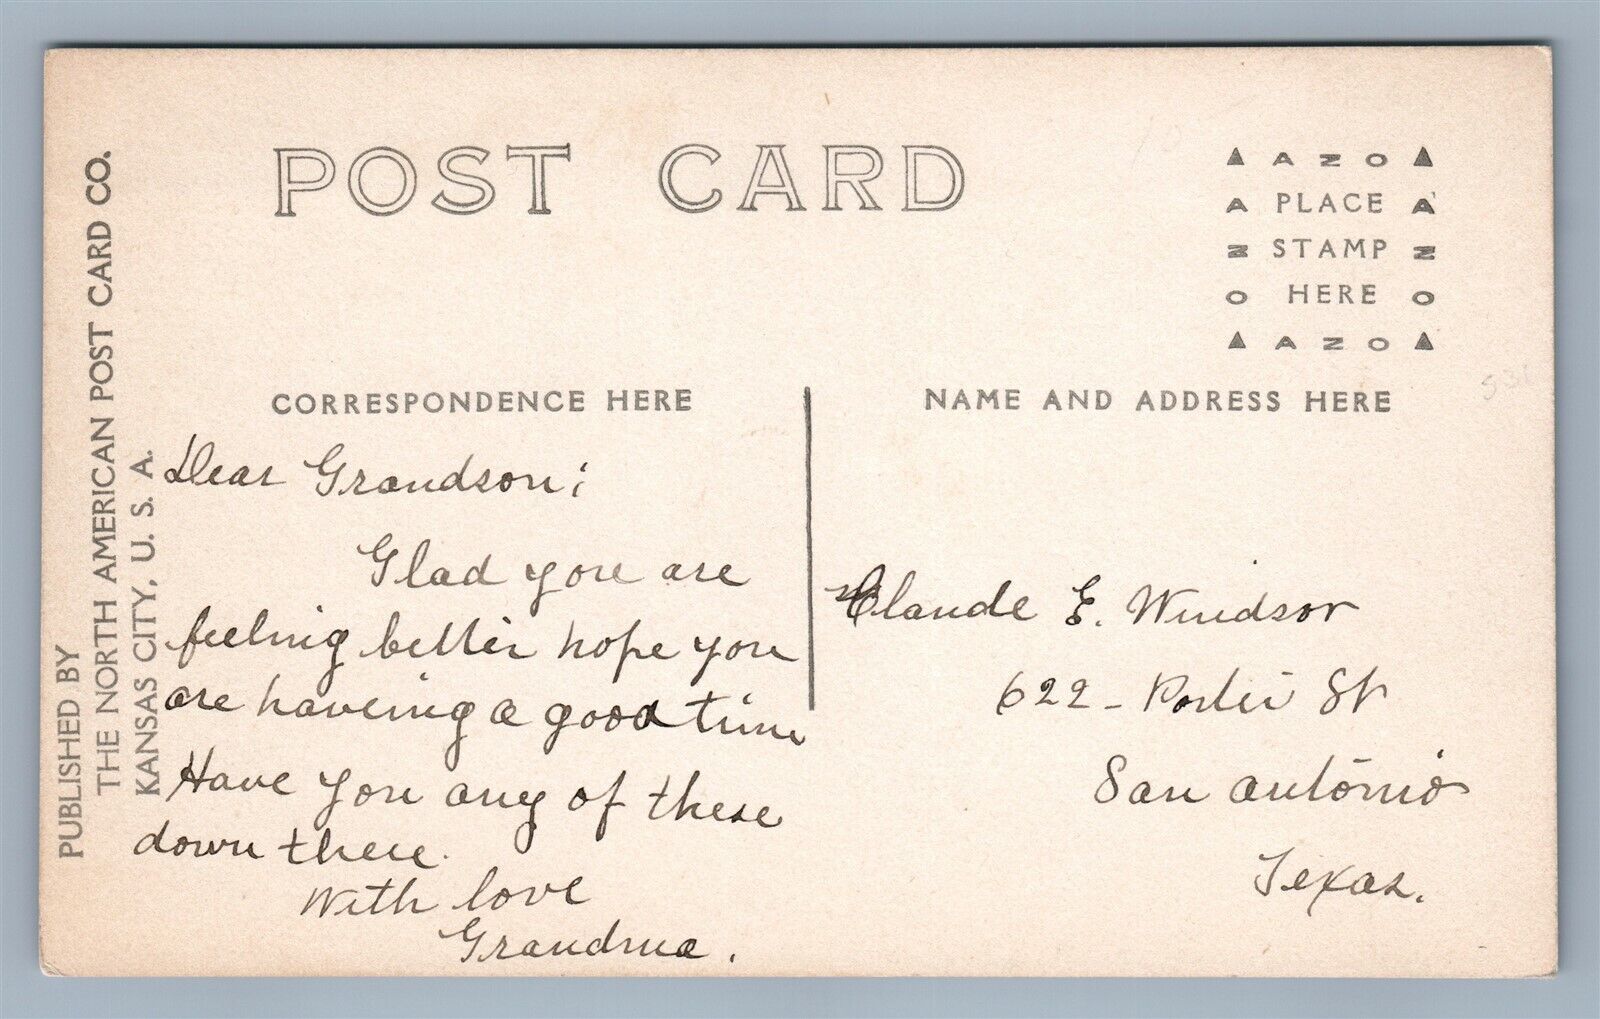 POST CARD
▲ A Z O ▲
A PLACE A
Z STAMP Z
O HERE O
▲ A Z O ▲
PUBLISHED BY
THE NORTH AMERICAN POST CARD CO.
KANSAS CITY, U. S. A.
CORRESPONDENCE HERE
Dear Grandson;
Glad you are
feeling better hope you
are haveing a good time
Have you any of these
down there.
With love
Grandma.
NAME AND ADDRESS HERE
Claude E. Windsor
622 - Porter St
San Antonio
Texas.